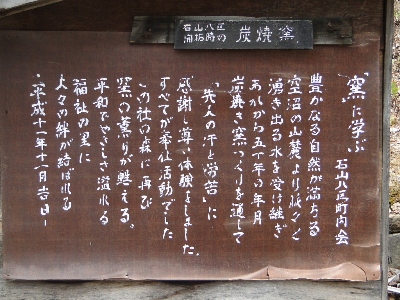 石山八区
滝坂時の
炭焼窯
「窯に学ぶ
石山八区町内会
豊かなる自然が満ちる
空沼の山麓より脈々と
湧き出る水を受け継ぎ
あれから五十年の年月
炭焼き窯つくりを通して
「先人の汗と労苦」に
感謝し尊い体験をしました。
すべてが奉仕活動でした
この社の森に再び
窯の薫りが甦る。
平和でやさしさ溢れる
福祉の里に
人々の絆が結ばれる
平成十一年十一月吉日